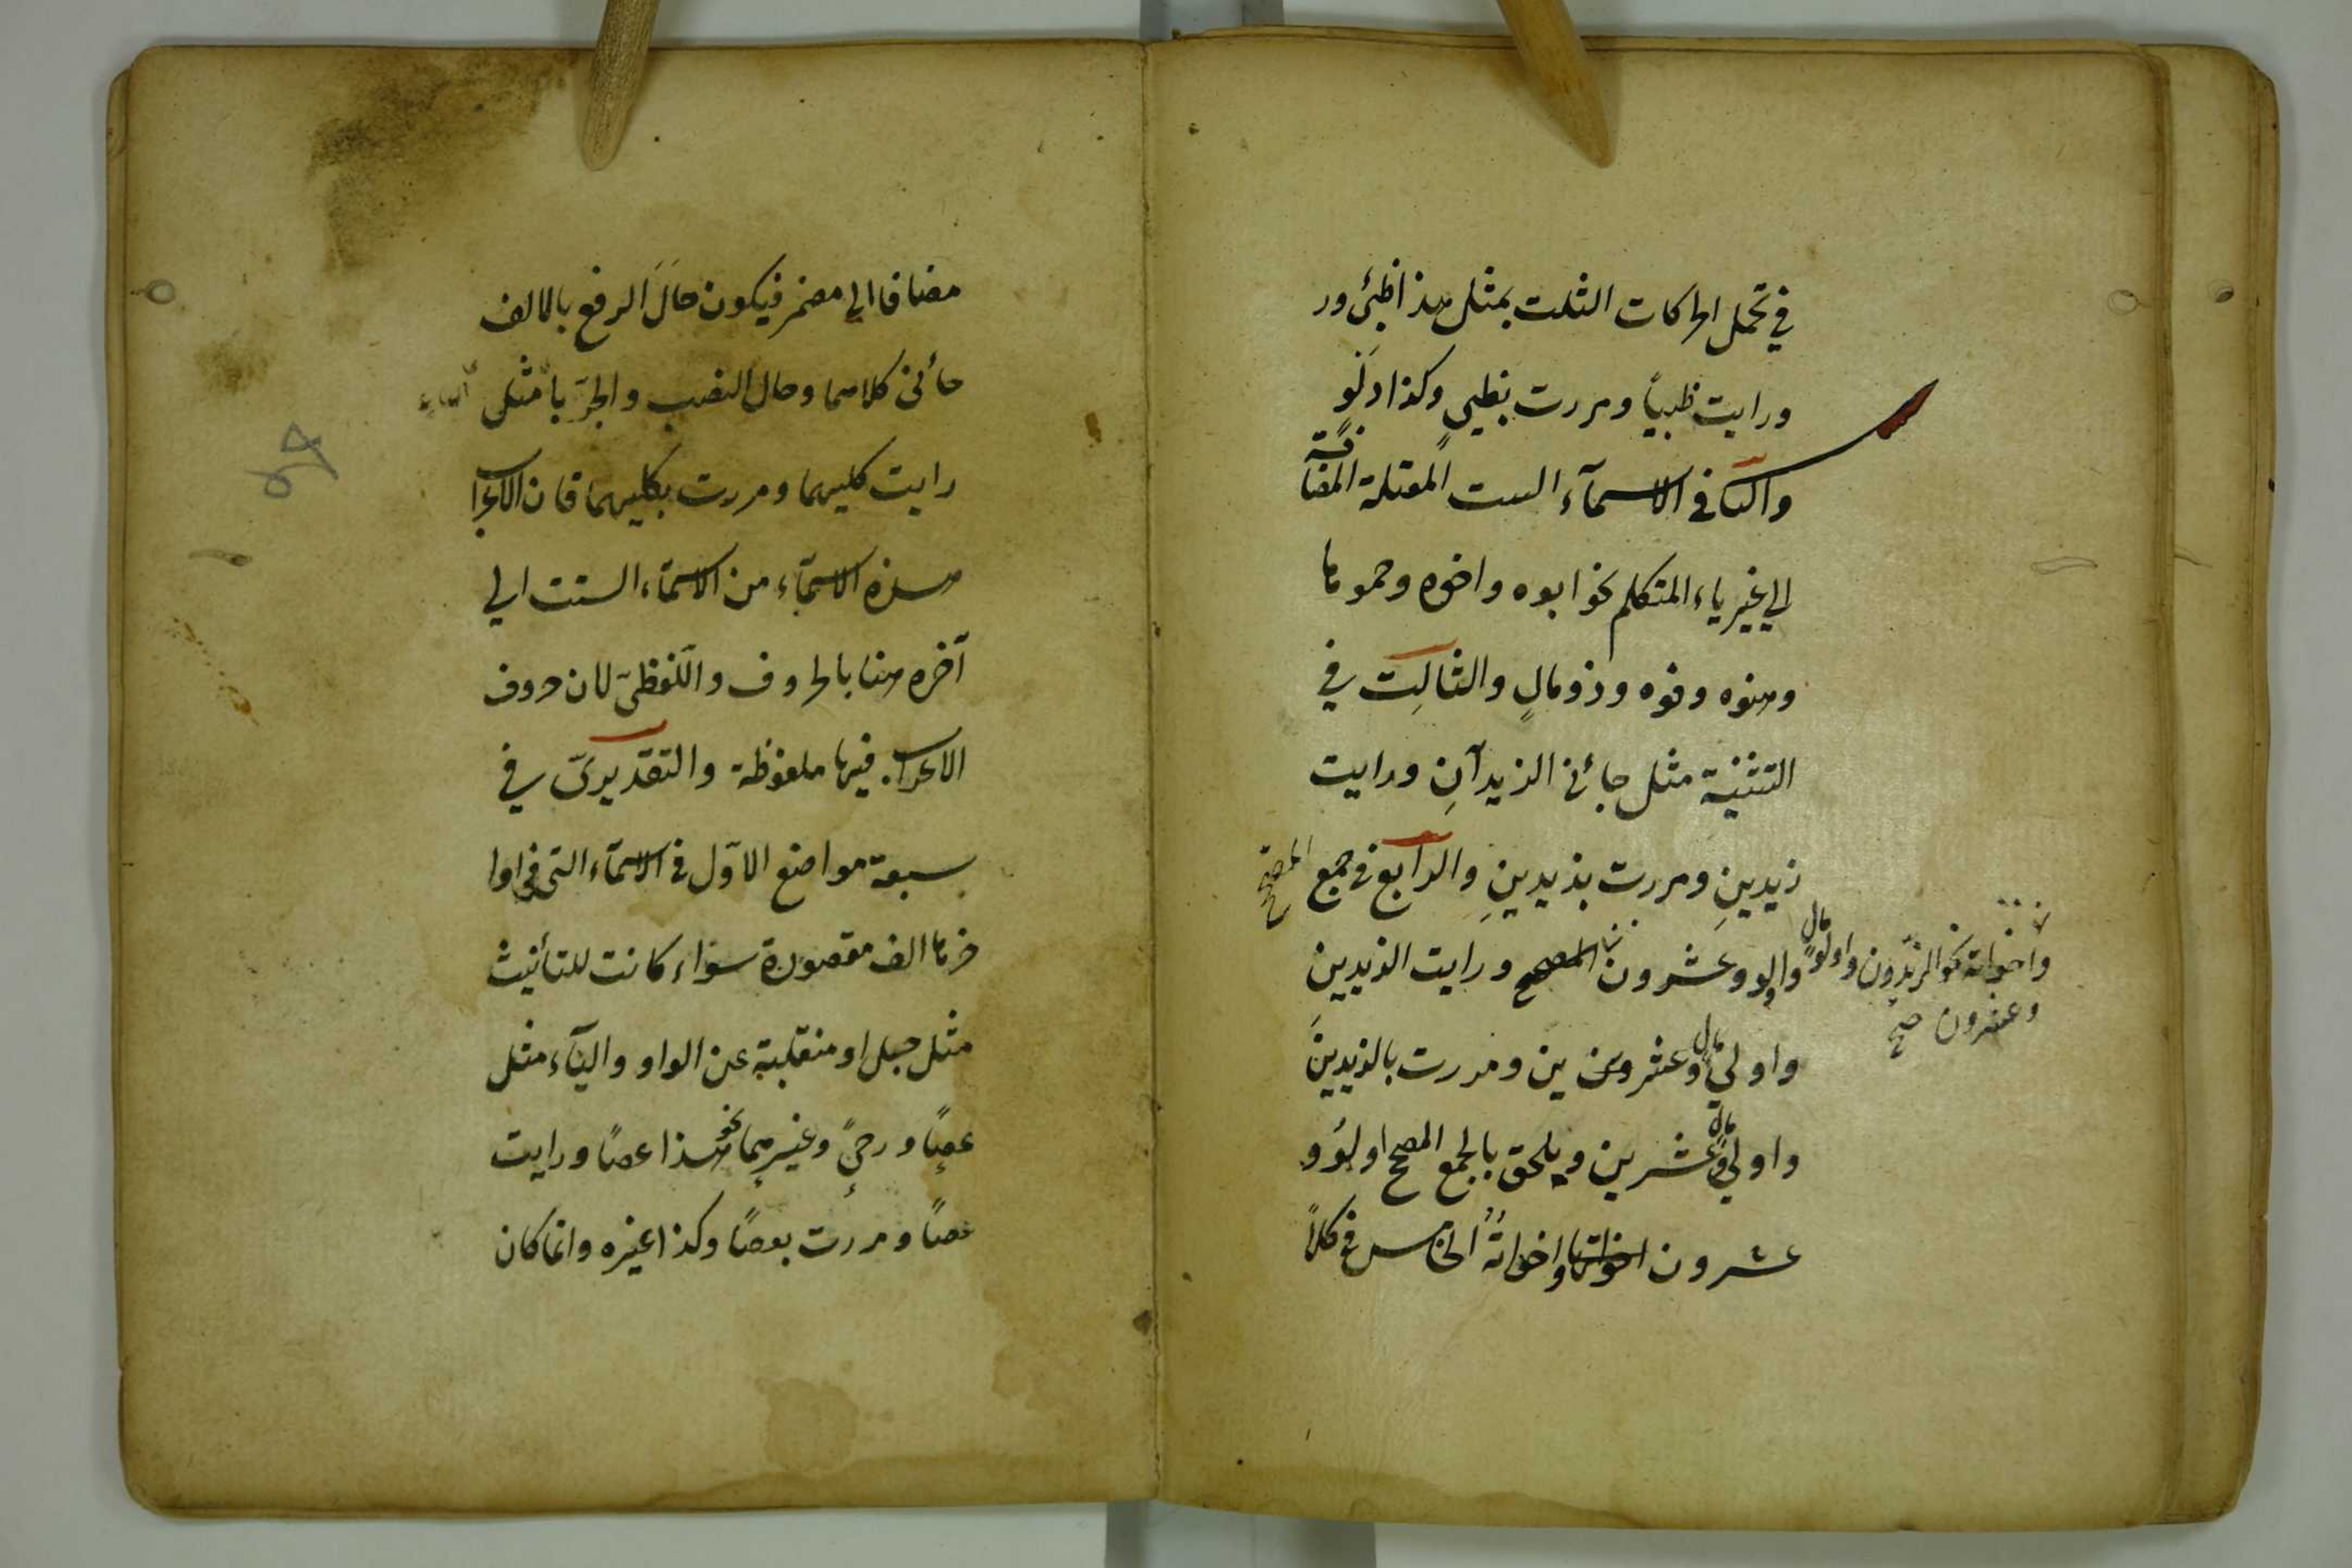 في تحمل الحركات الثلث بمثل هذا ظبئ ور
ورايت ظبياً ومررت بظبي وكذا دلو
والثاني في الاسمآء الست المعتلة المضافة
الي غير ياء المتكلم نحو ابوه واخوه وحموها
وهنوه وفوه وذو مالٍ والثالِث في
التثنية مثل جائني الزيدآنِ ورايت
زيدينِ ومررت بزيدينِ والرابع في جمع المصحح
واولو وعشرون المصحح ورايت الزيدينَ
واخواته نحو الزيدون واولو مال
وعشرون صح
واولي مال وعشرين ومررت بالزيدينَ
واولي مال وعشرين ويلحق بالجمع المصحح اولو و
عشرون اخواتها واخواتهُ الخامس في كلا
مضافا الي مضمر فيكون حالَ الرفع بالالف
جائنی كلاهما وحال النصب والجرّ بالياء مثل
رايت كليهما ومررت بكليهما فان الاعراب
هذه الاسمآء من الاسمآء الستت الي
آخره هنا بالحروف واللّفظیّ لان حروف
الاعراب فيها ملفوظة والتقديریّ في
سبعة مواضع الاوّل في الاسمآء التي في اوا
خرها الف مقصورة سوٓاء كانت للتأنيث
مثل حبلی او منقلبة عن الواو واليآء مثل
عصًا ورحیً وغيرهما نحو هذا عصًا ورايت
عصًا ومررت بعصًا وكذا غيره وانما كان